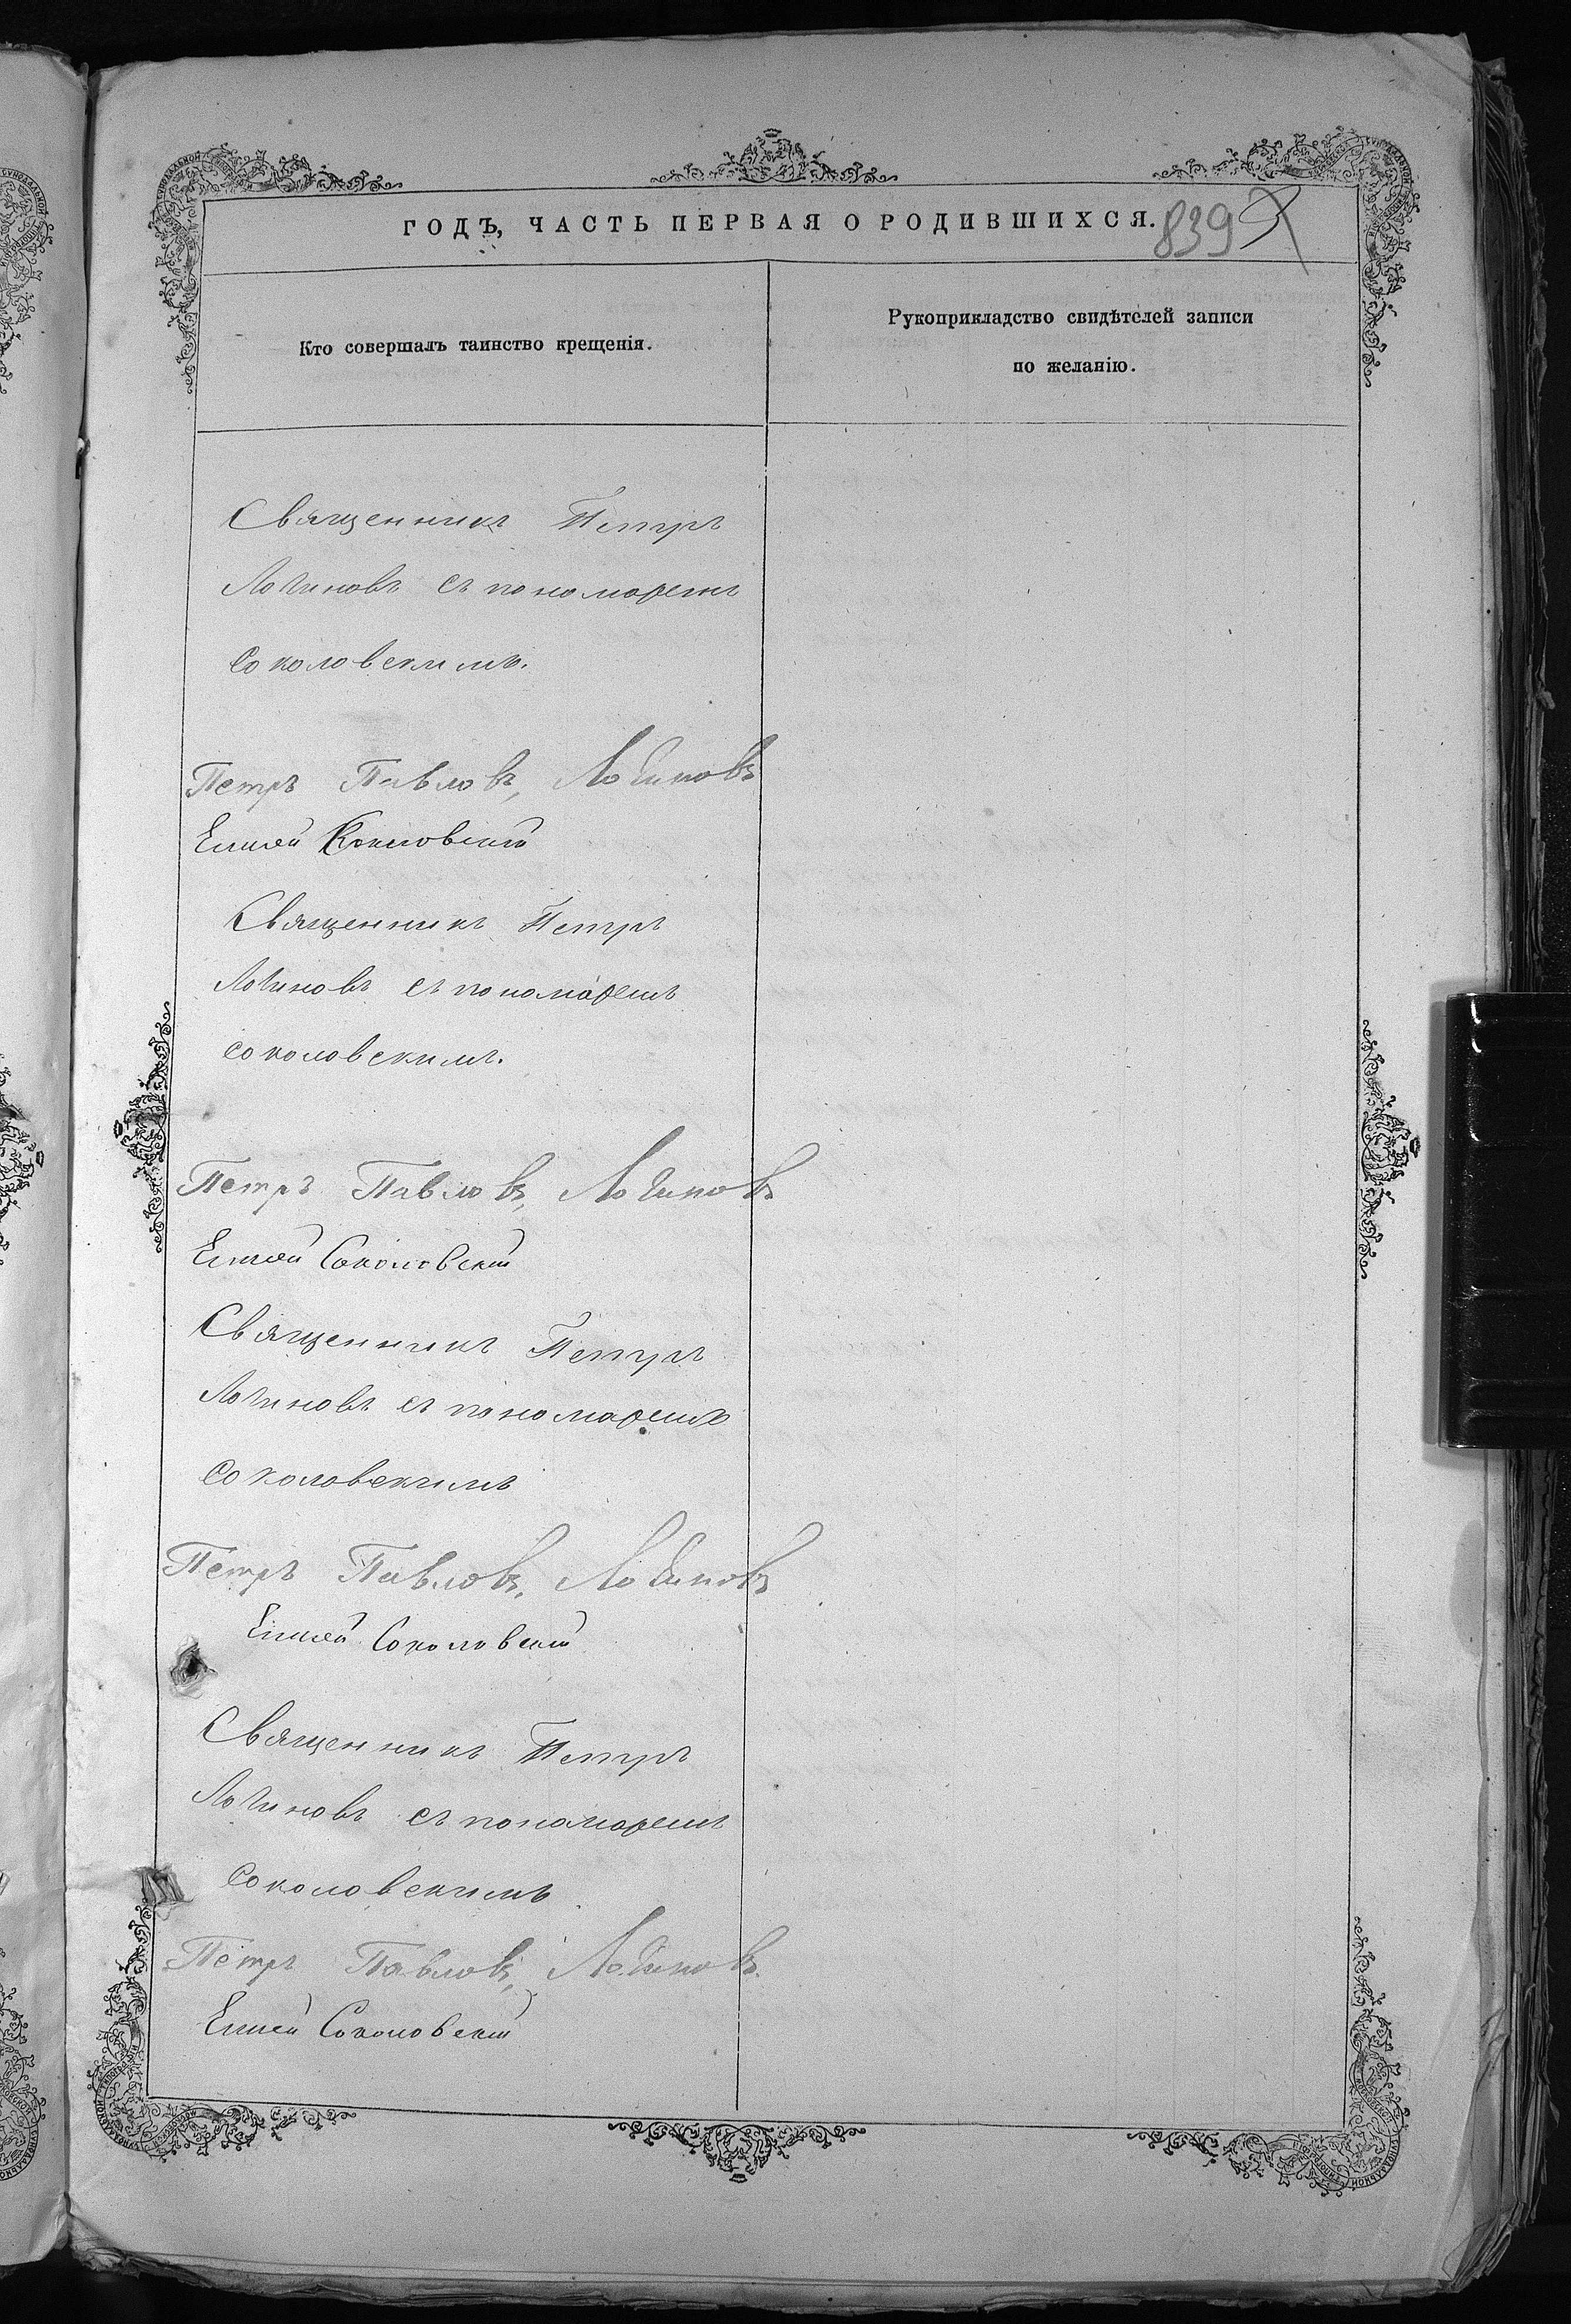 ГОДЪ, ЧАСТЬ ПЕРВАЯ О РОДИВШИХСЯ.
839
Кто совершалъ таинство крещенія.
Рукоприкладство свидѣтелей записи
по желанію.
Священникъ Петръ
Логиновъ съ пономаремъ
Соколовскимъ.
Петръ Павловъ, Логиновъ
Соколовскій
Священникъ Петръ
Логиновъ съ пономаремъ
соколовскимъ.
Петръ Павловъ, Логиновъ
Соколовскій
Священникъ Петръ
Логиновъ съ пономаремъ
Соколовскимъ
Петръ Павловъ, Логиновъ
Соколовскій
Священникъ Петръ
Логиновъ съ пономаремъ
Соколовскимъ
Петръ Павловъ, Логиновъ.
Соколовскій